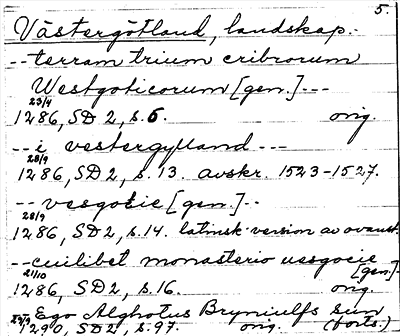 5.
Västergötland, landskap.
-- terram trium cribrorum
Westgoticorum [gen.] ---
23/4
1286, SD 2, s. 6. orig.
-- i vestergylland ---
28/9
1286, SD 2, s. 13. avskr. 1523-1527.
-- vesgocie [gen.] --
28/9
1286, SD 2, s. 14. latinsk version av ovanst.
-- cuilibet monasterio uesgocie
[gen.] -
21/10
1286, SD 2, s. 16. orig.
Ego Alghotus Bryniulfs sun
1290, SD 2, s. 97. orig. (forts.)